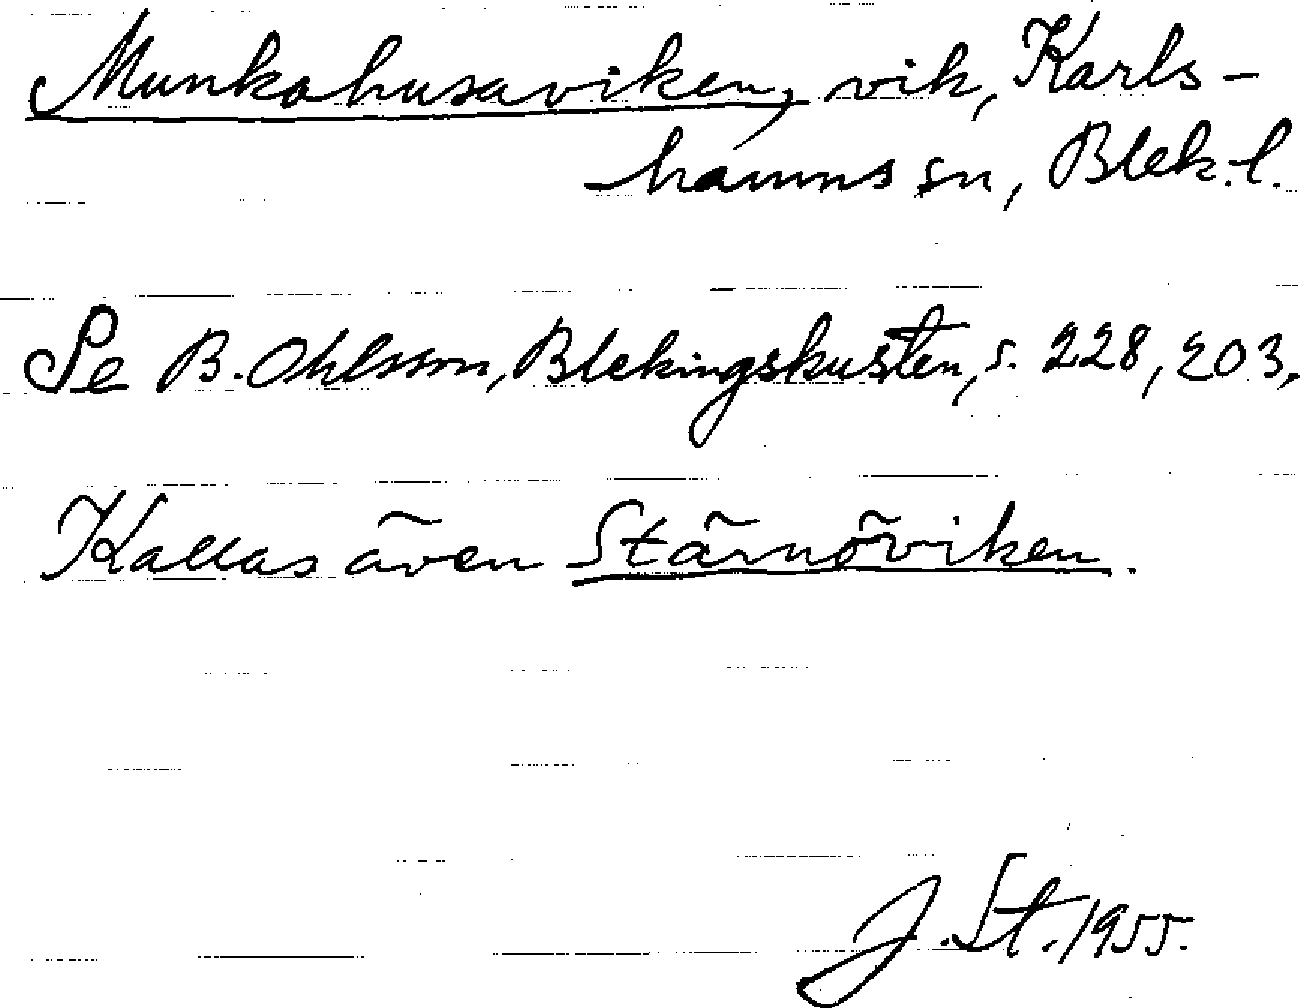 Munkahusaviken, vik, Karls-
hamns sn, Blek. l.
Se B. Ohlsson, Blekingskusten, s. 228, 203.
Kallas även Stärnöviken.
J. St. 1955.